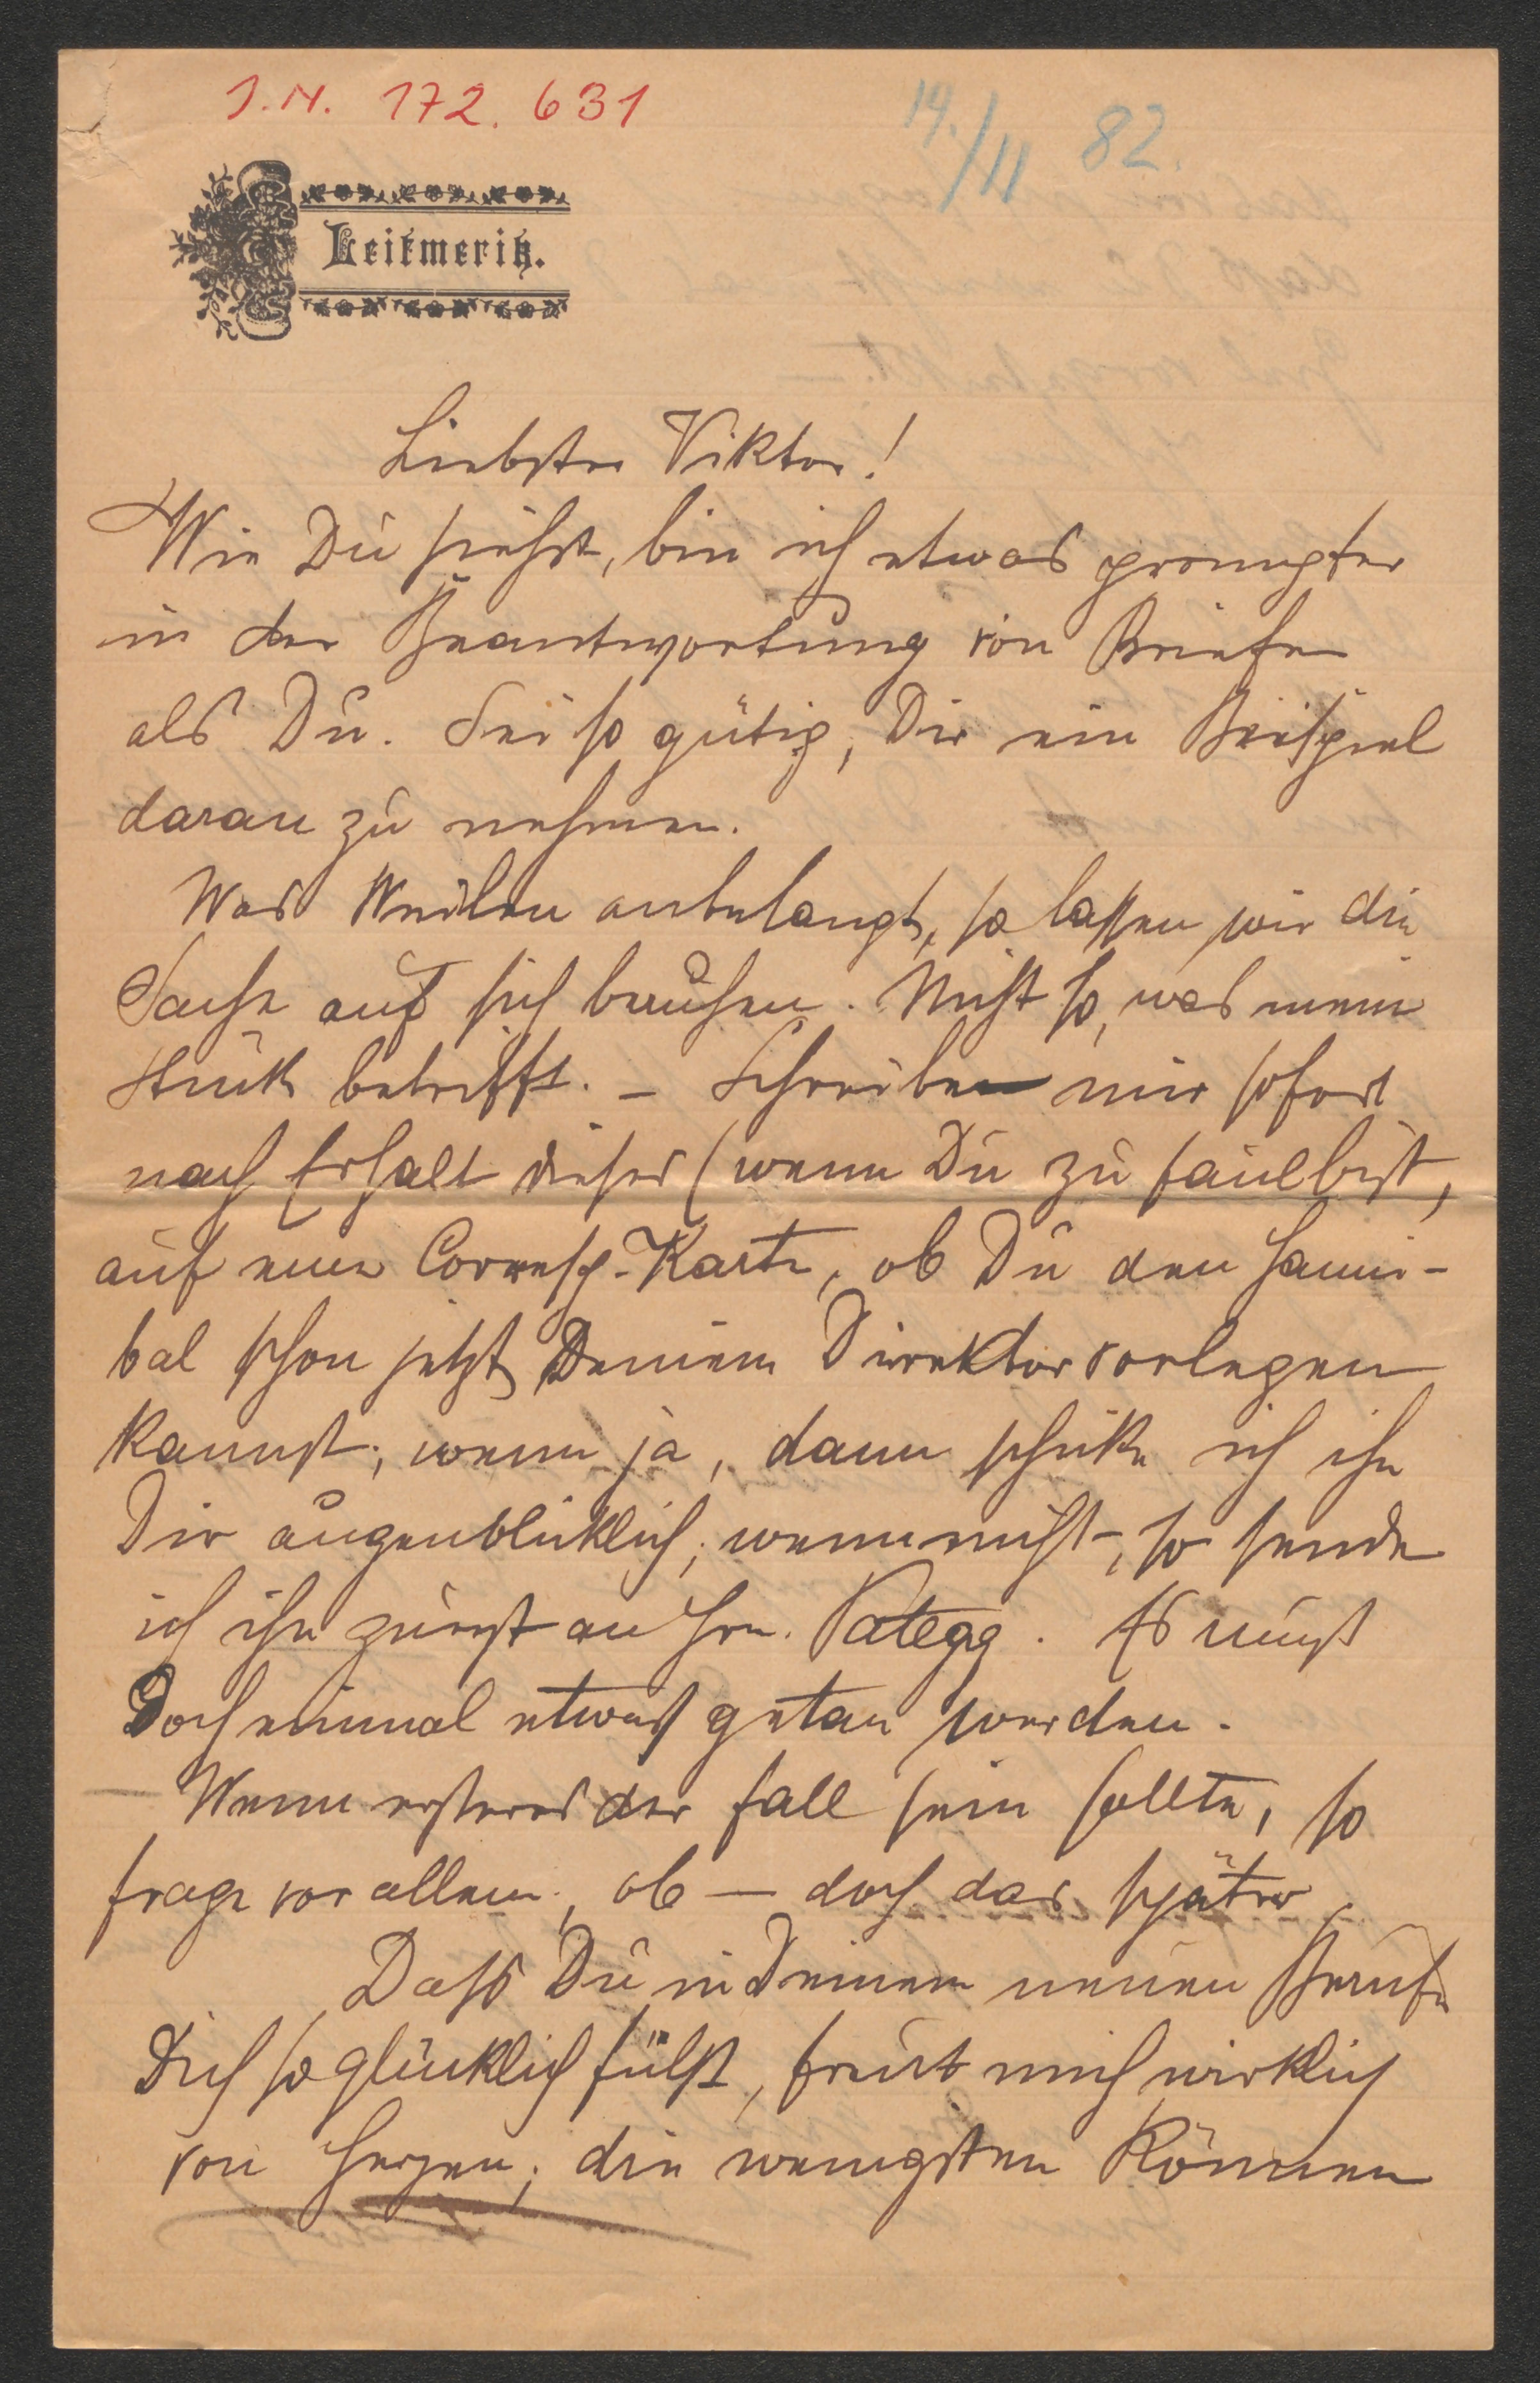 J.N. 172.631
14./11 82.
Leitmeritz.
Liebster Viktor!
Wie Du siehst, bin ich etwas prompter
in der Beantwortung von Briefen
als Du. Sei so gütig, Dir ein Beispiel
daran zu nehmen.
Was Weilen anbelangt, so lassen wir die
Sache auf sich beruhen. Nicht so, was mein
Stück betrifft. – Schreibe mir sofort
nach Erhalt dieses (wenn Du zu faul bist,
auf einer Corresp.-Karte, ob Du den Hanni-
bal schon jetzt Deinem Direktor vorlegen
kannst; wenn ja, dann schicke ich ihn
Dir augenblicklich; wenn nicht, so sende
ich ihn zuerst an Hrn. Pategg. Es muß
Doch einmal etwas getan werden.
Wenn ersteres der Fall sein sollte, so
frage vor allem, ob — doch das später.
Dass Du in Deinem neuen Berufe
Dich so glücklich fülst, freut mich wirklich
von Herzen; die wenigsten können